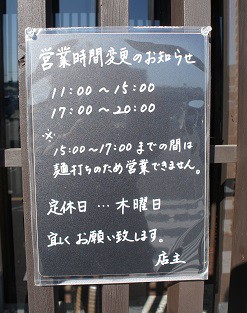 営業時間変更のお知らせ
11:00～15:00
17:00～20:00
※
15:00～17:00までの間は
麺打ちのため営業できません。
定休日…木曜日
宜しくお願い致します。
店主